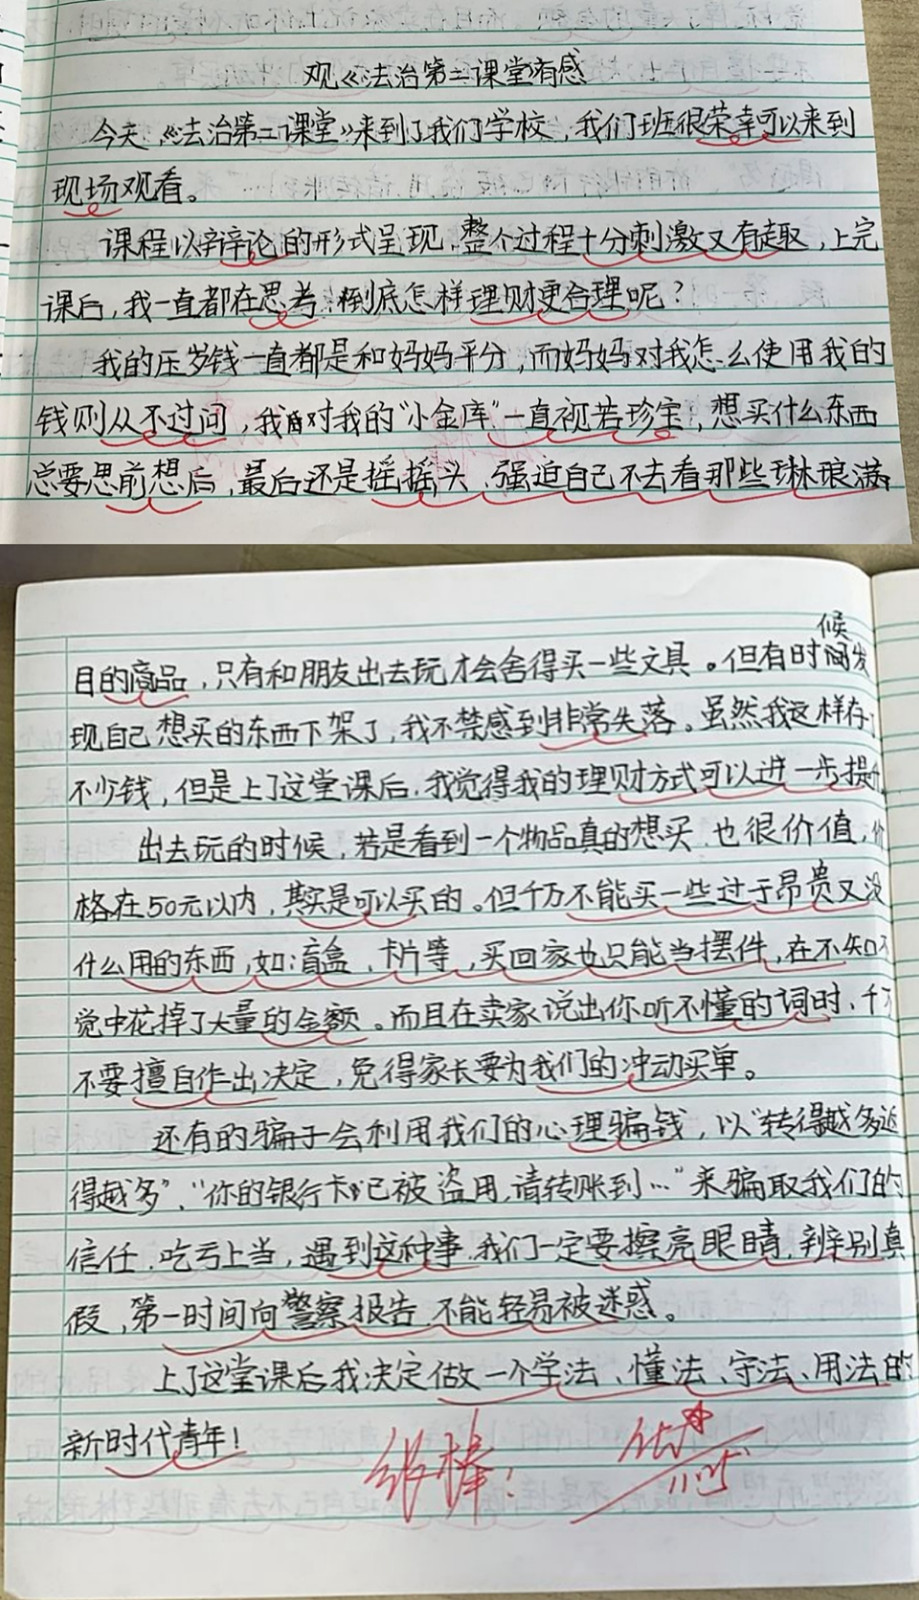 观《法治第二课堂有感
今天，《法治第二课堂》来到了我们学校，我们班很荣幸可以来到
现场观看。
课程以辩论的形式呈现，整个过程十分刺激又有趣，上完
课后，我一直都在思考：到底怎样理财更合理呢？
我的压岁钱一直都是和妈妈平分，而妈妈对我怎么使用我的
钱则从不过问，我对我的“小金库”一直视若珍宝，想买什么东西
总要思前想后，最后还是摇摇头，强迫自己不去看那些琳琅满
候
目的商品，只有和朋友出去玩才会舍得买一些文具。但有时发
现自己想买的东西下架了，我不禁感到非常失落。虽然我这样存
不少钱，但是上了这堂课后，我觉得我的理财方式可以进一步提升
出去玩的时候，若是看到一个物品真的想买，也很价值，价
格在50元以内，其实是可以买的。但千万不能买一些过于昂贵又没
什么用的东西，如：盲盒、卡片等，买回家也只能当摆件，在不知不
觉中花掉了大量的金额。而且在卖家说出你听不懂的词时，千万
不要擅自作出决定，免得家长要为我们的冲动买单。
还有的骗子会利用我们的心理骗钱，以“转得越多返
得越多”、“你的银行卡已被盗用，请转账到…”来骗取我们的
信任，吃亏上当，遇到这种事，我们一定要擦亮眼睛，辨别真
假，第一时间向警察报告，不能轻易被迷惑。
上了这堂课后我决定做一个学法、懂法、守法、用法的
新时代青年！
棒！ 优☆
11.25